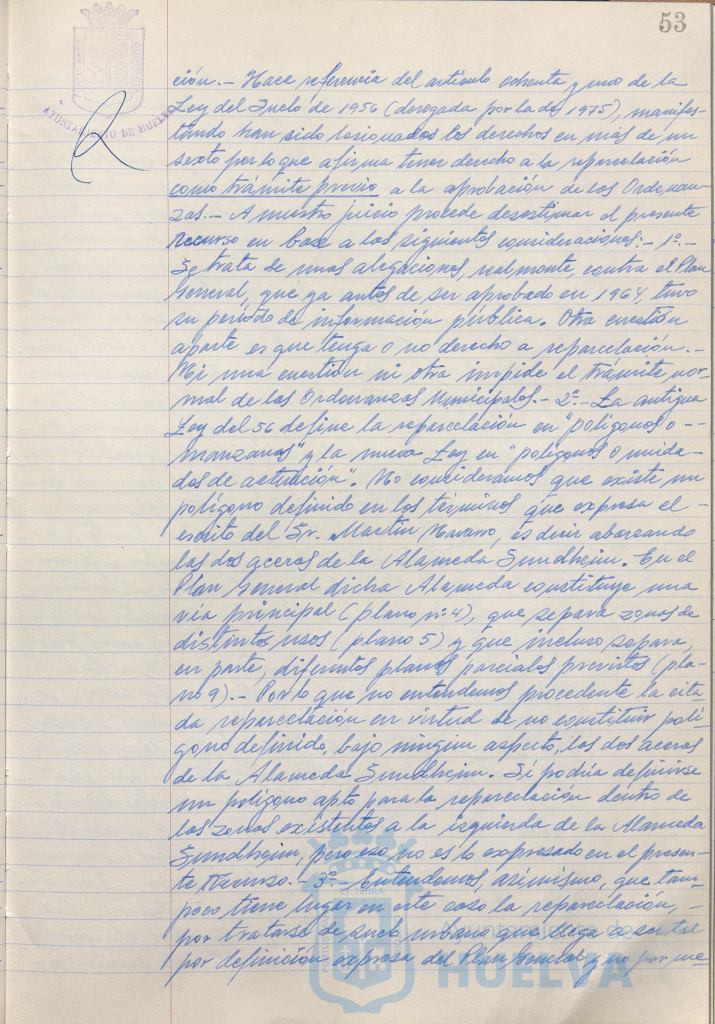 53
AYUNTAMIENTO DE HUELVA
ción.- Hace referencia del artículo ochenta y uno de la
Ley del Suelo de 1956 (derogada por la de 1975), manifes-
tando han sido los derechos en más de un
sexto por lo que afirma tener derecho a la reparcelación
como trámite previo a la aprobación de las Ordenan-
zas.- A nuestro juicio procede desestimar el presente
Recurso en base a las siguientes consideraciones:- 1º.-
Se trata de unas alegaciones, realmente, contra el Plan
General, que ya antes de ser aprobado en 1964, tuvo
su período de información pública. Otra cuestión
aparte es que tenga o no derecho a reparcelación.-
Ni una cuestión ni otra impide el trámite nor-
mal de las Ordenanzas Municipales.- 2º.- La antigua
Ley del 56 define la reparcelación en "polígonos o --
manzanas" y la nueva Ley en "polígonos o unida-
des de actuación". No consideramos que existe un
polígono definido en los términos que expresa el -
escrito del Sr. Martín Navarro, es decir abarcando
las dos aceras de la Alameda Sundheim. En el
Plan General dicha Alameda constituye una
vía principal (plano nº 4), que separa zonas de
distintos usos (plano 5) y que incluso separa,
en parte, diferentes planes parciales previstos (pla-
no 9).- Por lo que no entendemos procedente la cita-
da reparcelación en virtud de no constituir polí-
gono definido, bajo ningún aspecto, las dos aceras
de la Alameda Sundheim. Sí podría definirse
un polígono apto para la reparcelación dentro de
las zonas existentes a la izquierda de la Alameda
Sundheim, pero eso no es lo expresado en el presen-
te Recurso.- 3º.- Entendemos, asimismo, que tam-
poco tiene lugar en este caso la reparcelación, -
por tratarse de suelo urbano que llega a ser tal
por definición expresa del Plan General y no por me-
HUELVA